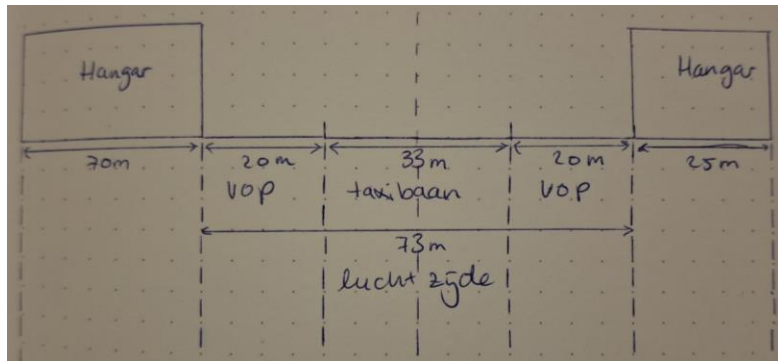 Hangar
Hangar
70m
20m
33m
20m
25m
VOP
taxibaan
VOP
73m
lucht zijde